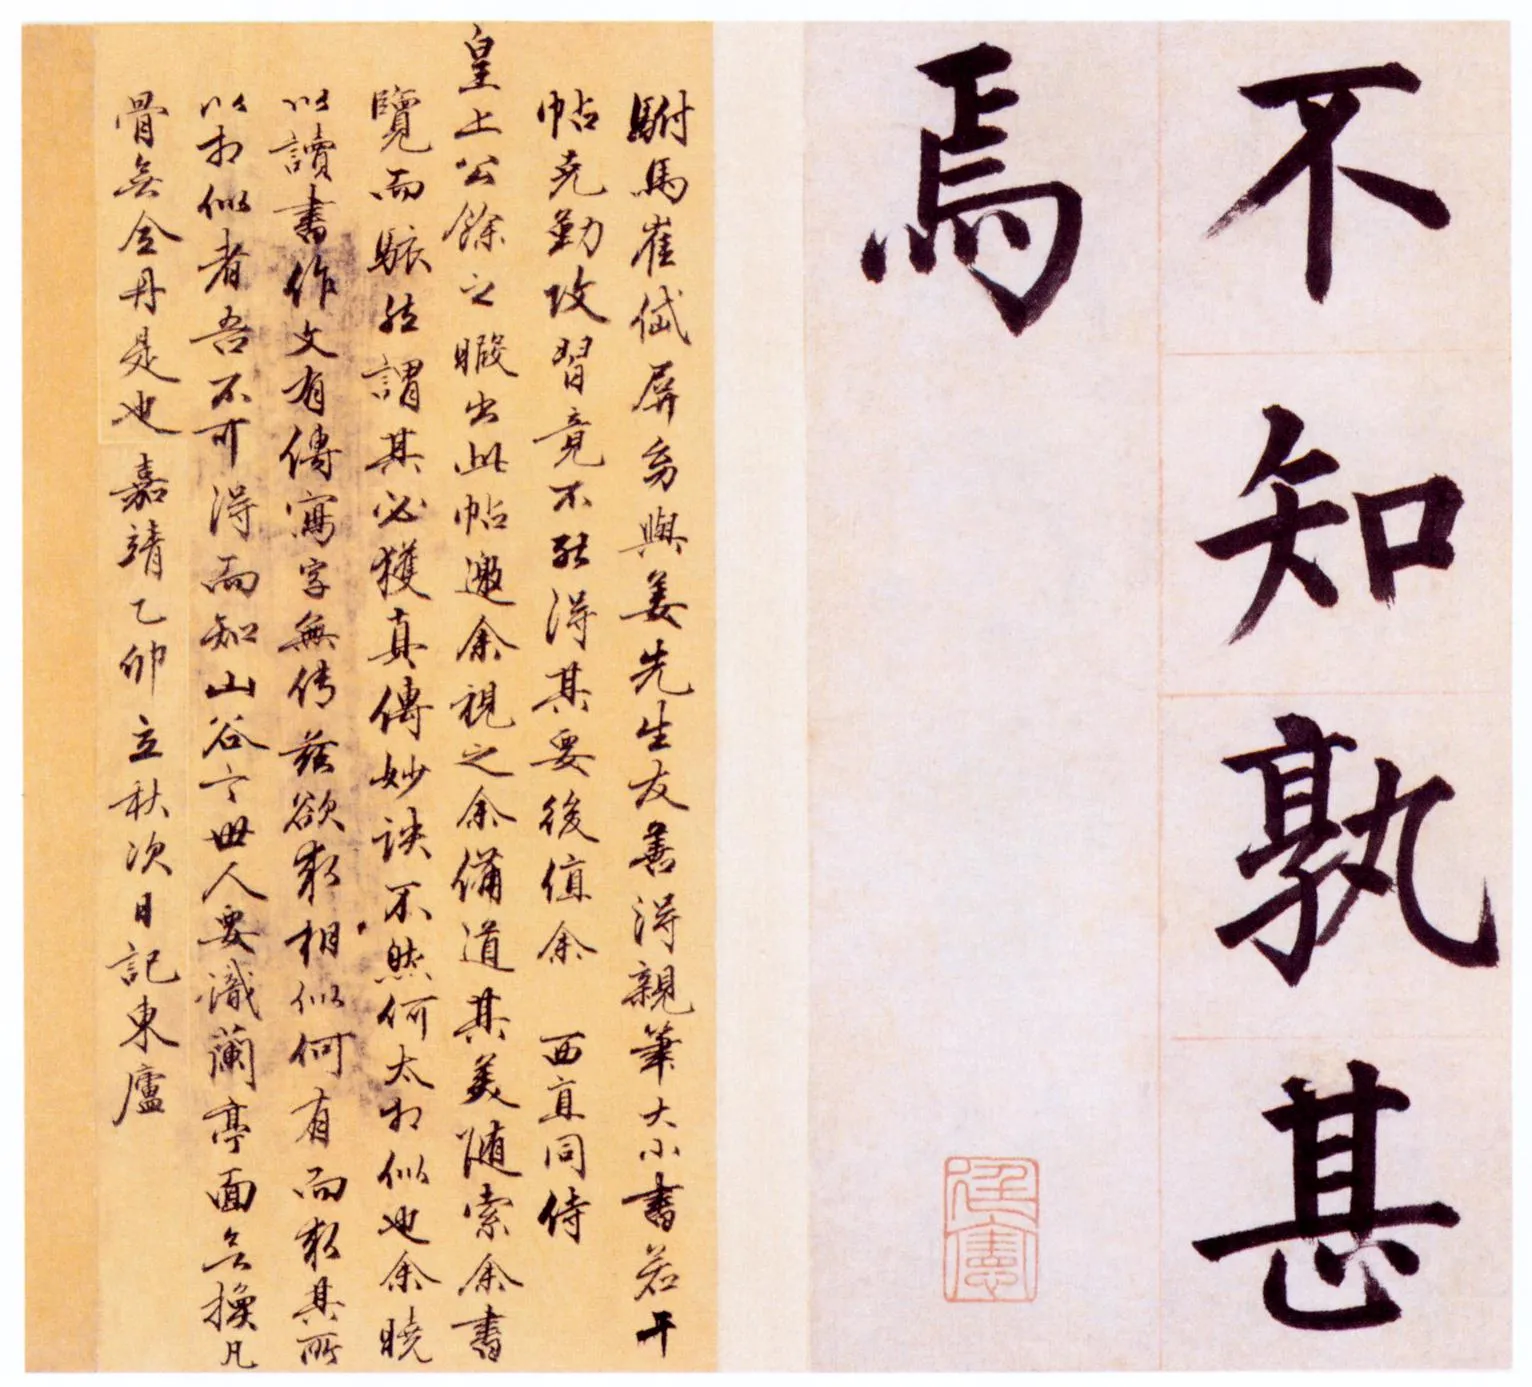 不知孰甚
焉
駙馬崔岱屏多與姜先生友善得親筆大小書若干
帖克勤攻習竟不能得其要後值余 西直同侍
皇上公餘之暇出此帖邀余視之余備道其美随索余書
覽而駭然謂其必獲真傳妙訣不然何太相似也余曉
以讀書作文有傳寫字無傳兹欲求相似何有而求其所
以相似者吾不可得而知山谷云世人要識蘭亭面無換凡
骨無金丹是也嘉靖乙卯立秋次日記東廬